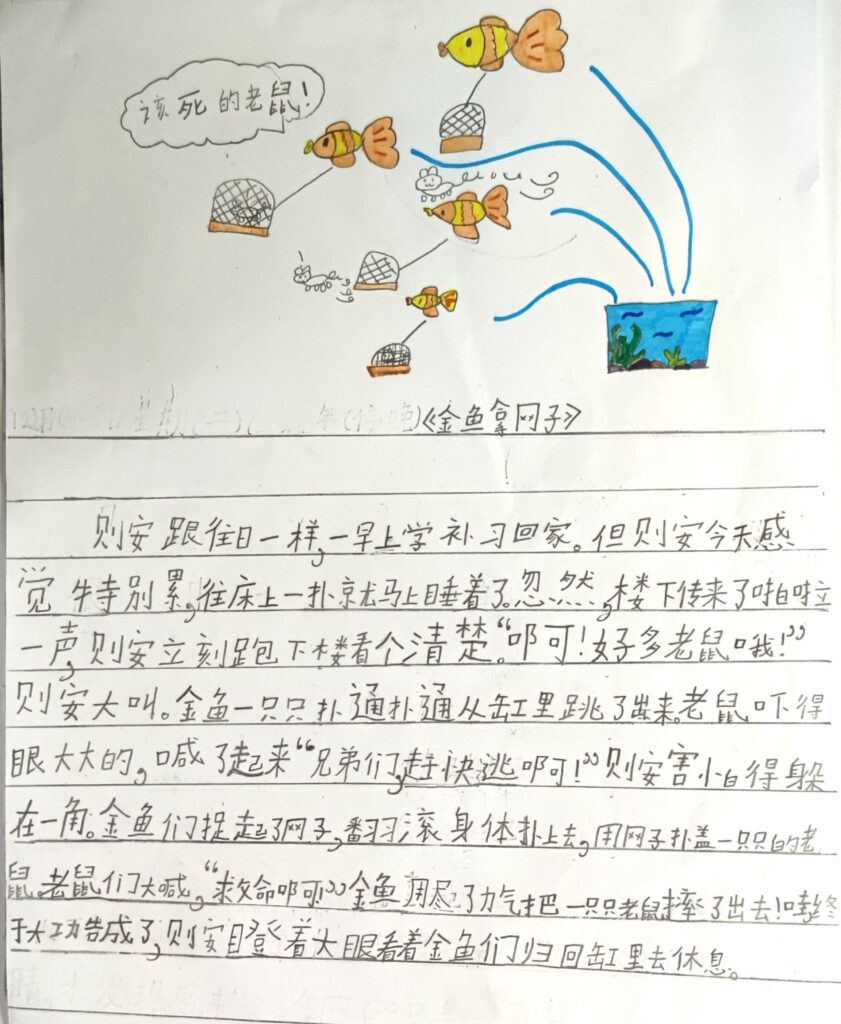 该死的老鼠!
《金鱼拿网子》
则安跟往日一样,一早上学补习回家。但则安今天感
觉特别累,往床上一扑就马上睡着了。忽然,楼下传来了啪啦
一声,则安立刻跑下楼看个清楚。“啊!好多老鼠哦!”
则安大叫。金鱼一只只扑通扑通从缸里跳了出来。老鼠吓得
眼大大的,喊了起来“兄弟们,赶快逃啊!”则安害怕得躲
在一角。金鱼们捉起了网子,翻滚身体扑上去,用网子扑盖一只只的老
鼠。老鼠们大喊,“救命啊!”金鱼用尽了力气把一只只老鼠摔了出去!终
于大功告成了,则安瞪着大眼看着金鱼们归回缸里去休息。